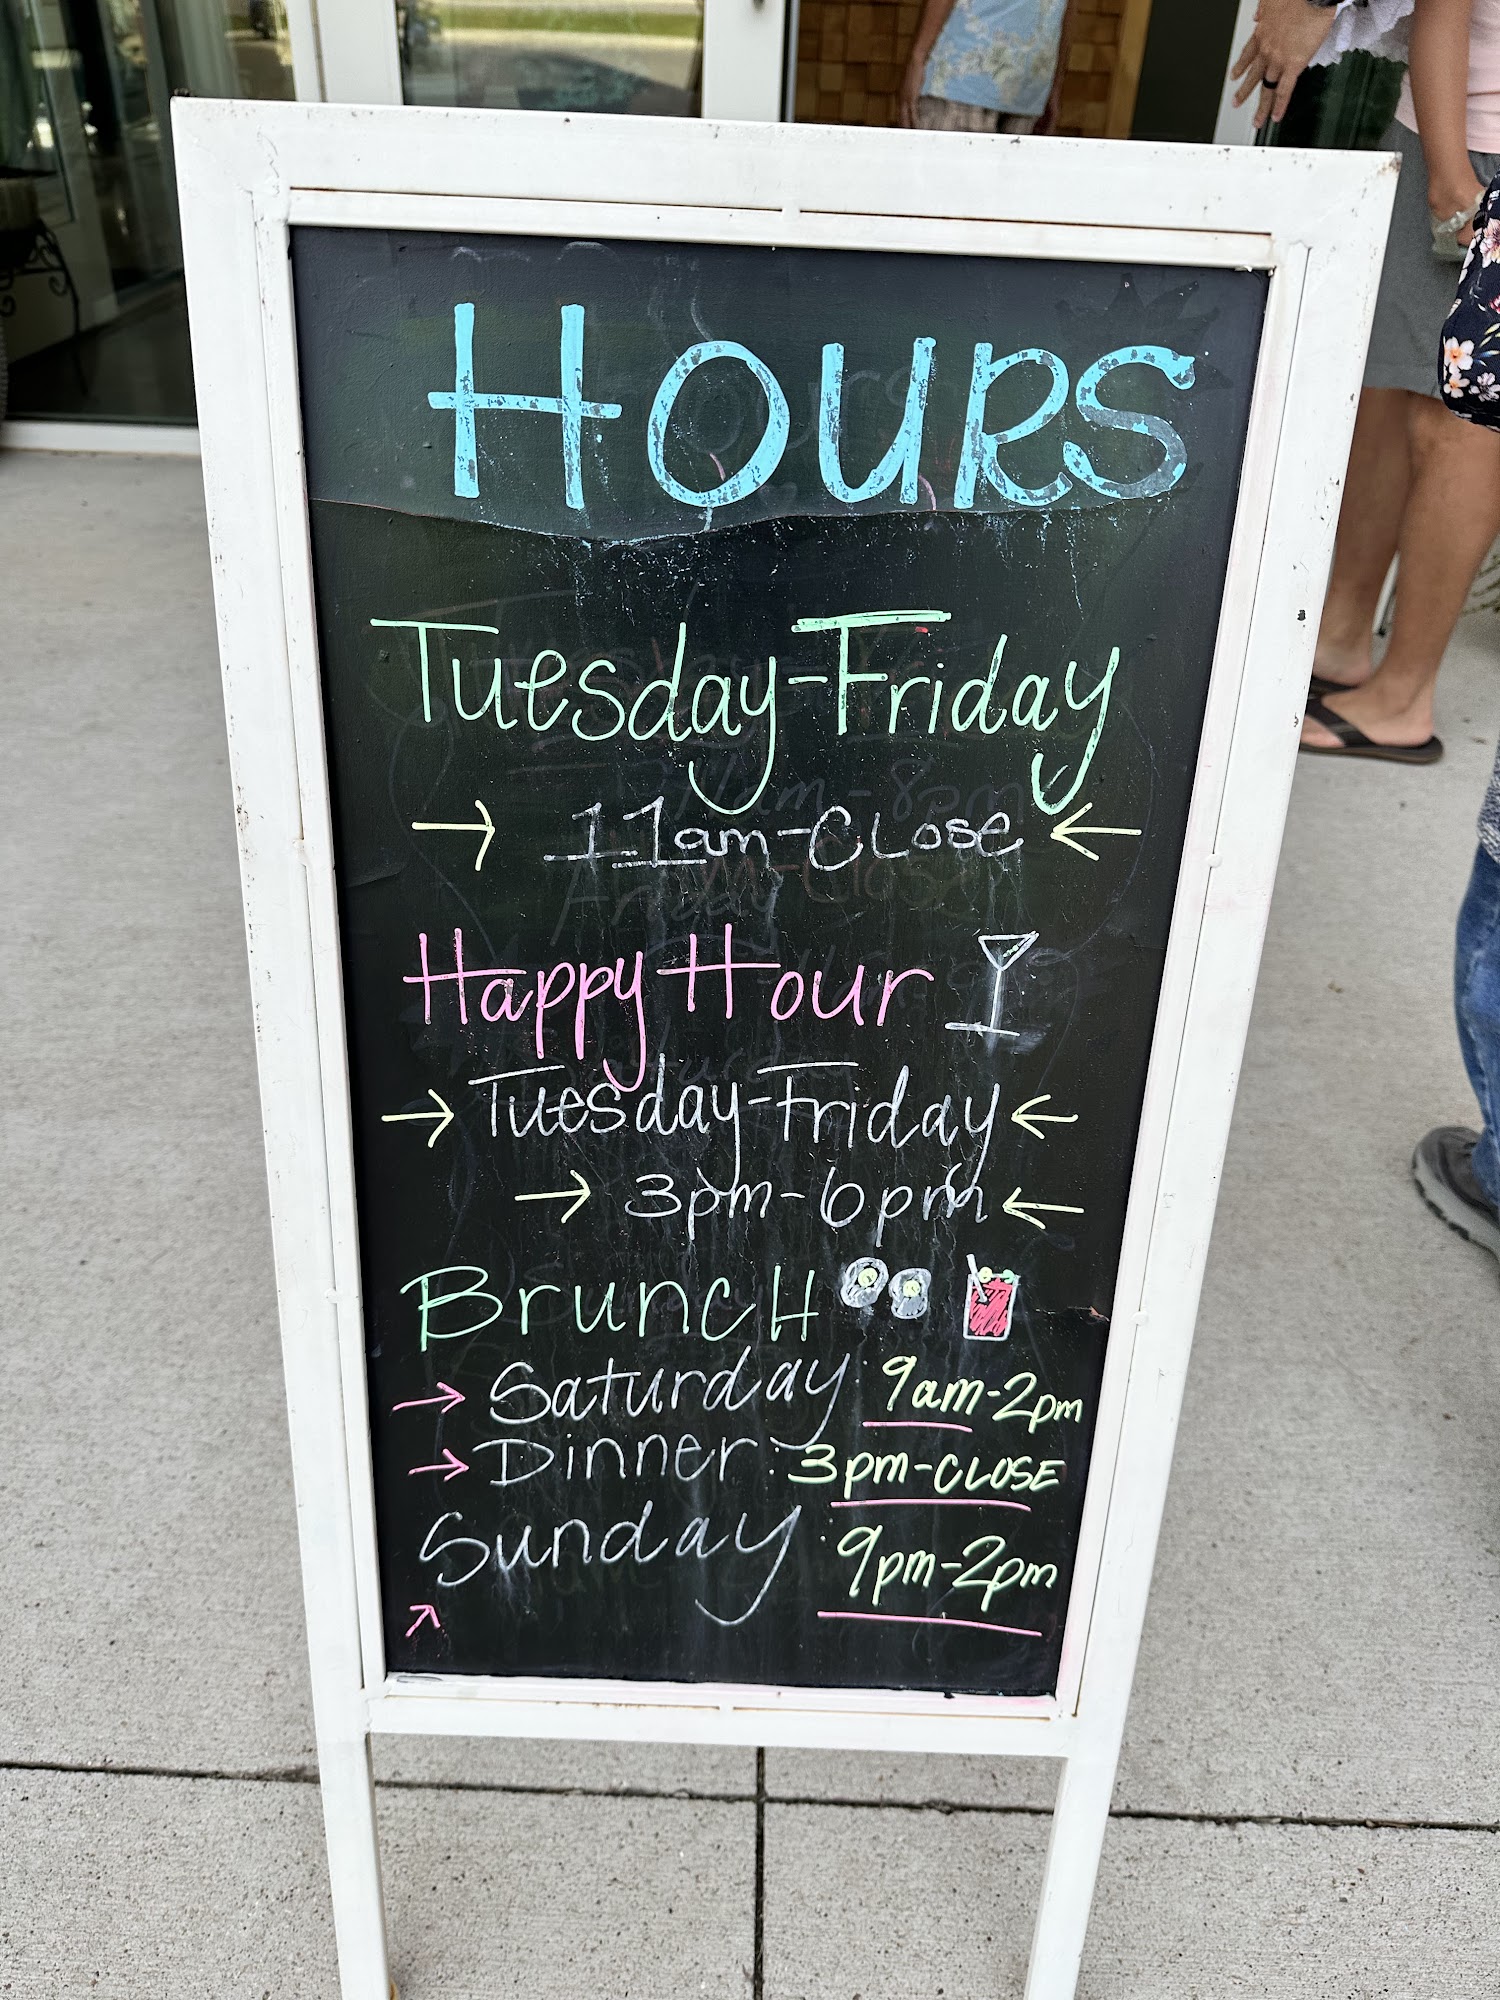 HOURS
Tuesday-Friday
→ 11am-CLose ←
Happy Hour
→ Tuesday-Friday ←
→ 3pm-6pm ←
BruncH
→ Saturday: 9am-2pm
→ Dinner: 3pm-CLOSE
Sunday: 9pm-2pm